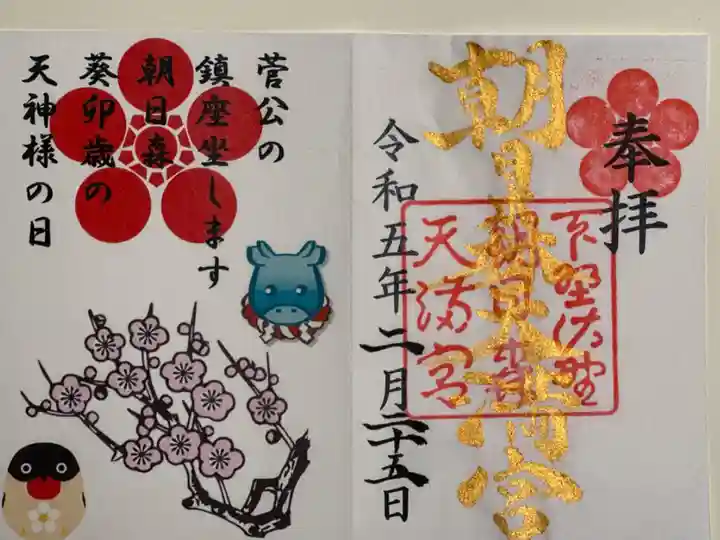 奉拝
朝日森天満宮
下野佐野
朝日森
天満宮
令和五年二月二十五日
菅公の
鎮座坐します
朝日森
癸卯歳の
天神様の日